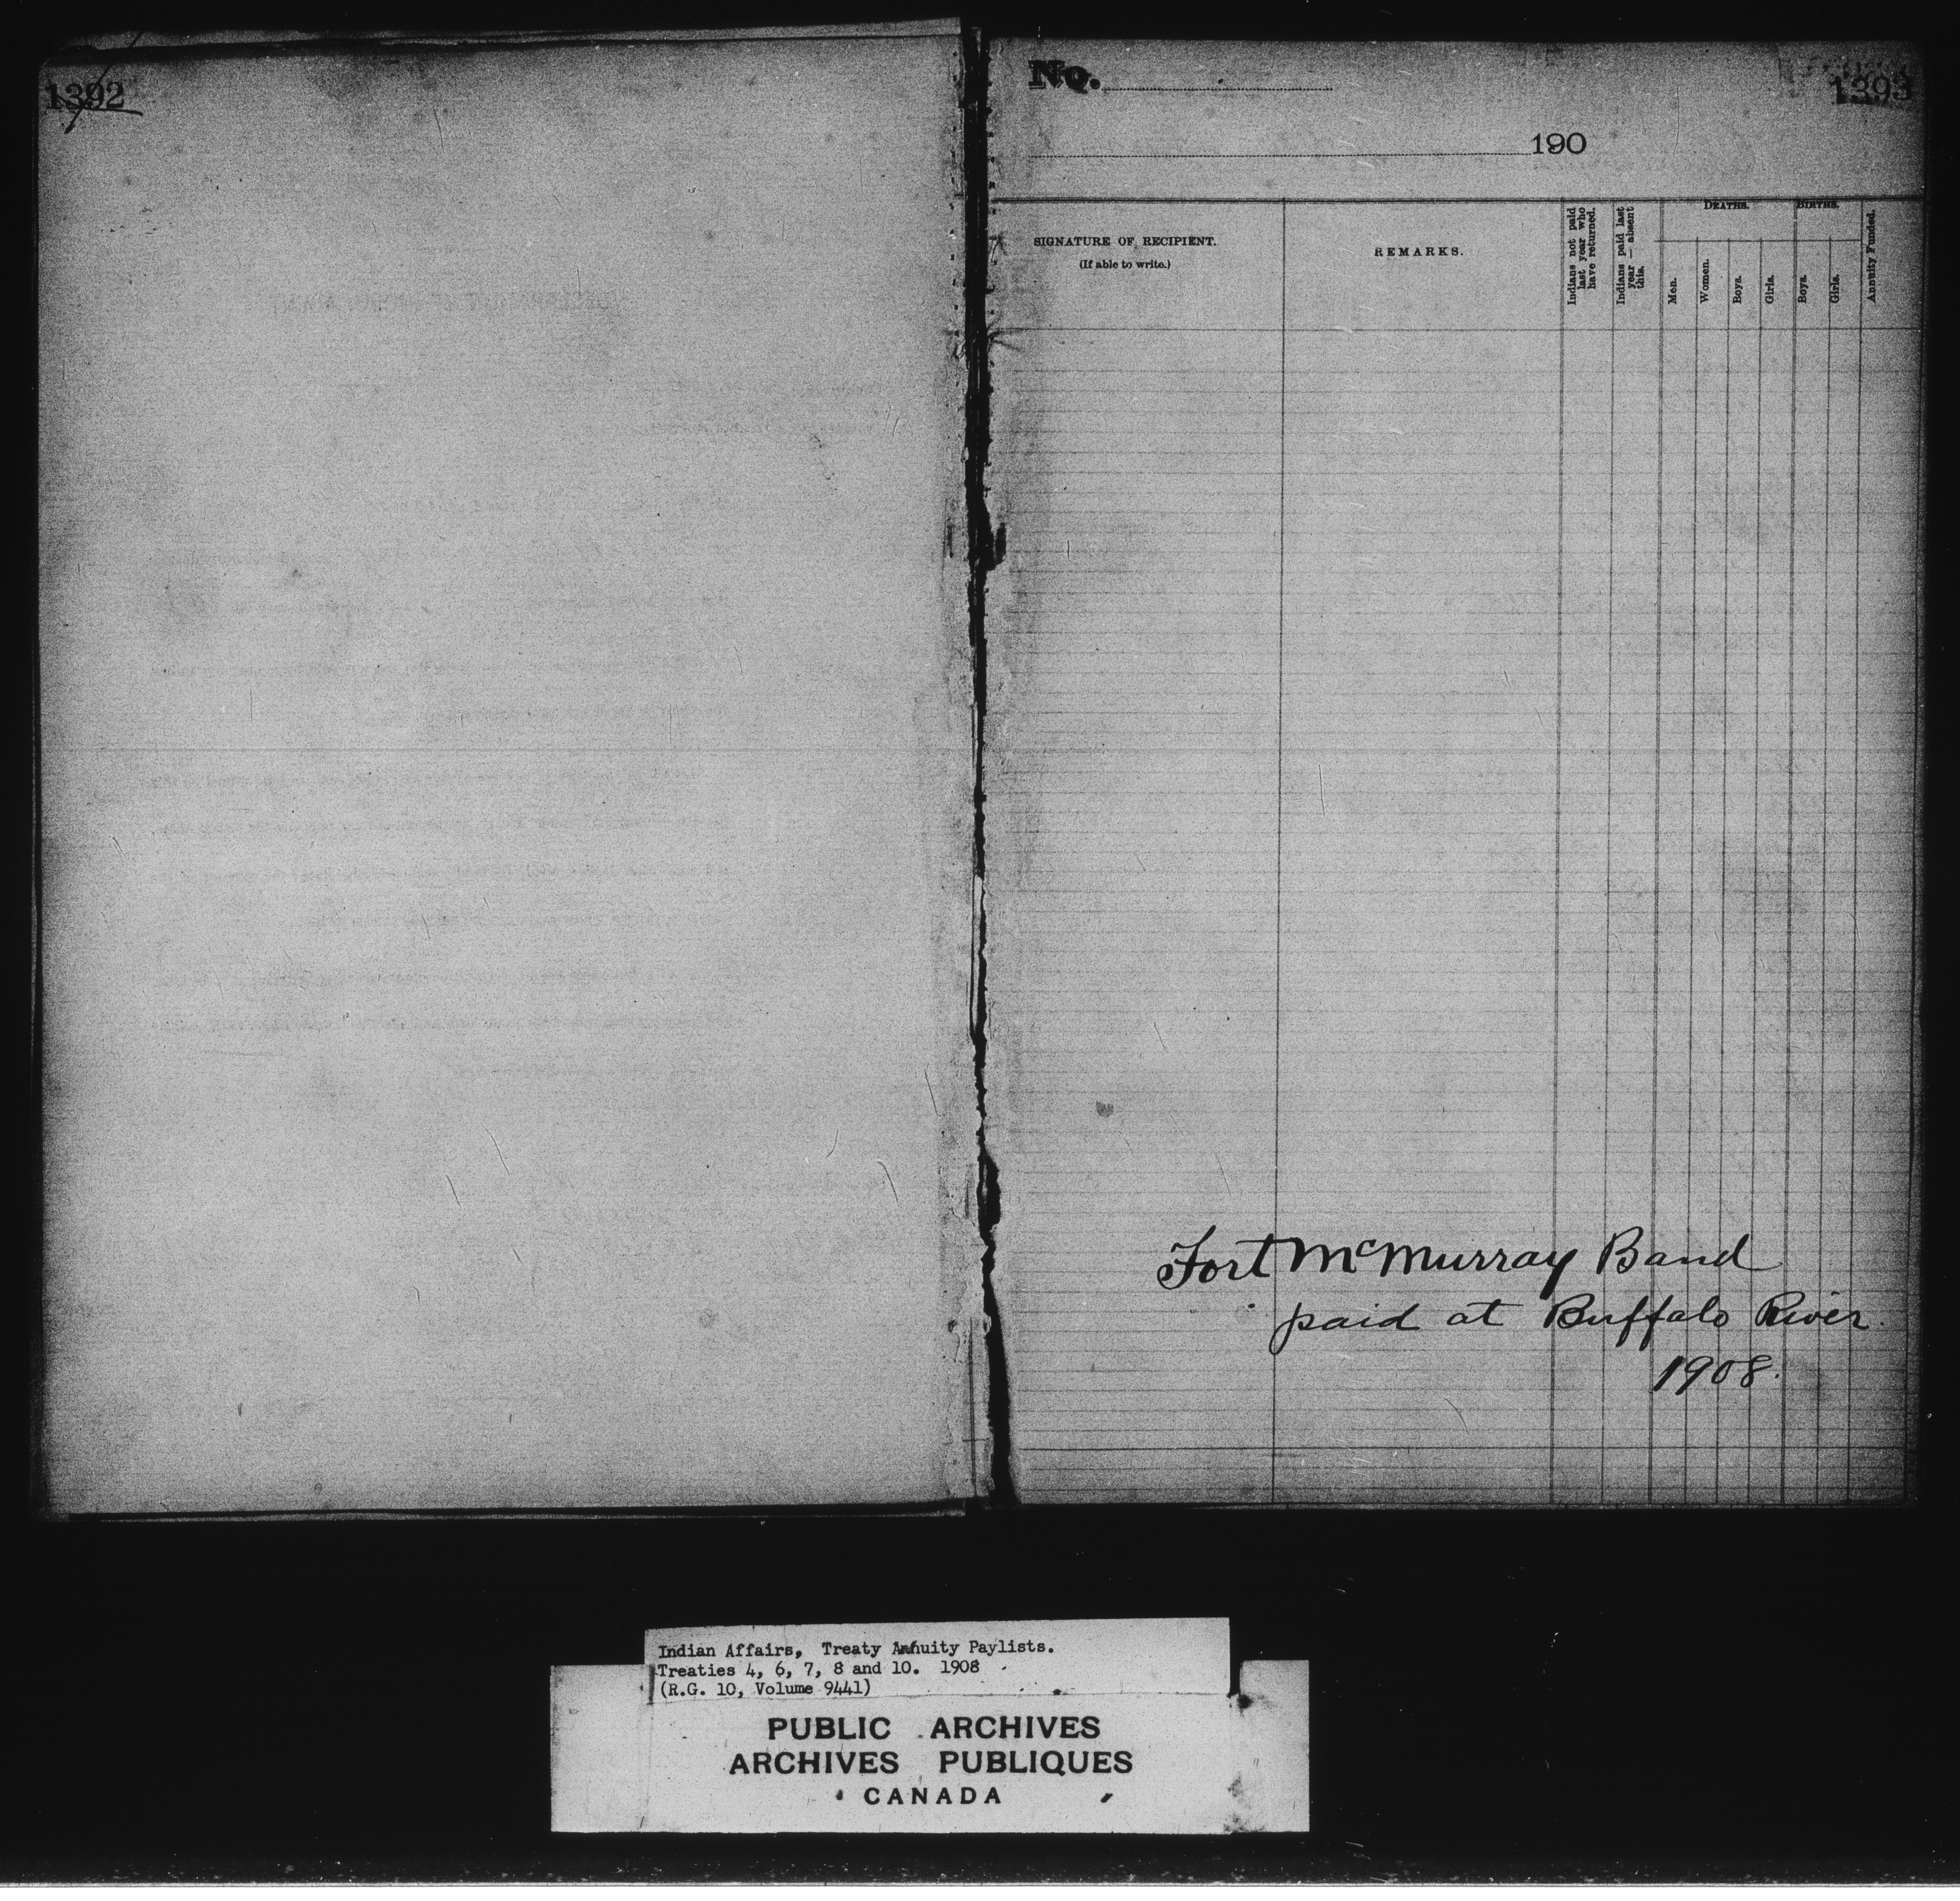 1392
No.
1393
190
SIGNATURE OF RECIPIENT.
(If able to write.)
REMARKS.
Indians not paid
last year who
have returned.
Indians paid last
year — absent
this.
DEATHS.
Men.
Women.
Boys.
Girls.
BIRTHS.
Boys.
Girls.
Annuity Funded.
Fort McMurray Band
paid at Buffalo River.
1908.
Indian Affairs, Treaty Annuity Paylists.
Treaties 4, 6, 7, 8 and 10. 1908
(R.G. 10, Volume 9441)
PUBLIC ARCHIVES
ARCHIVES PUBLIQUES
CANADA